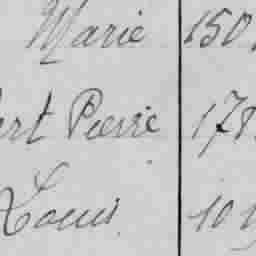 Marie 150
ert Pierre 178
Louis 10